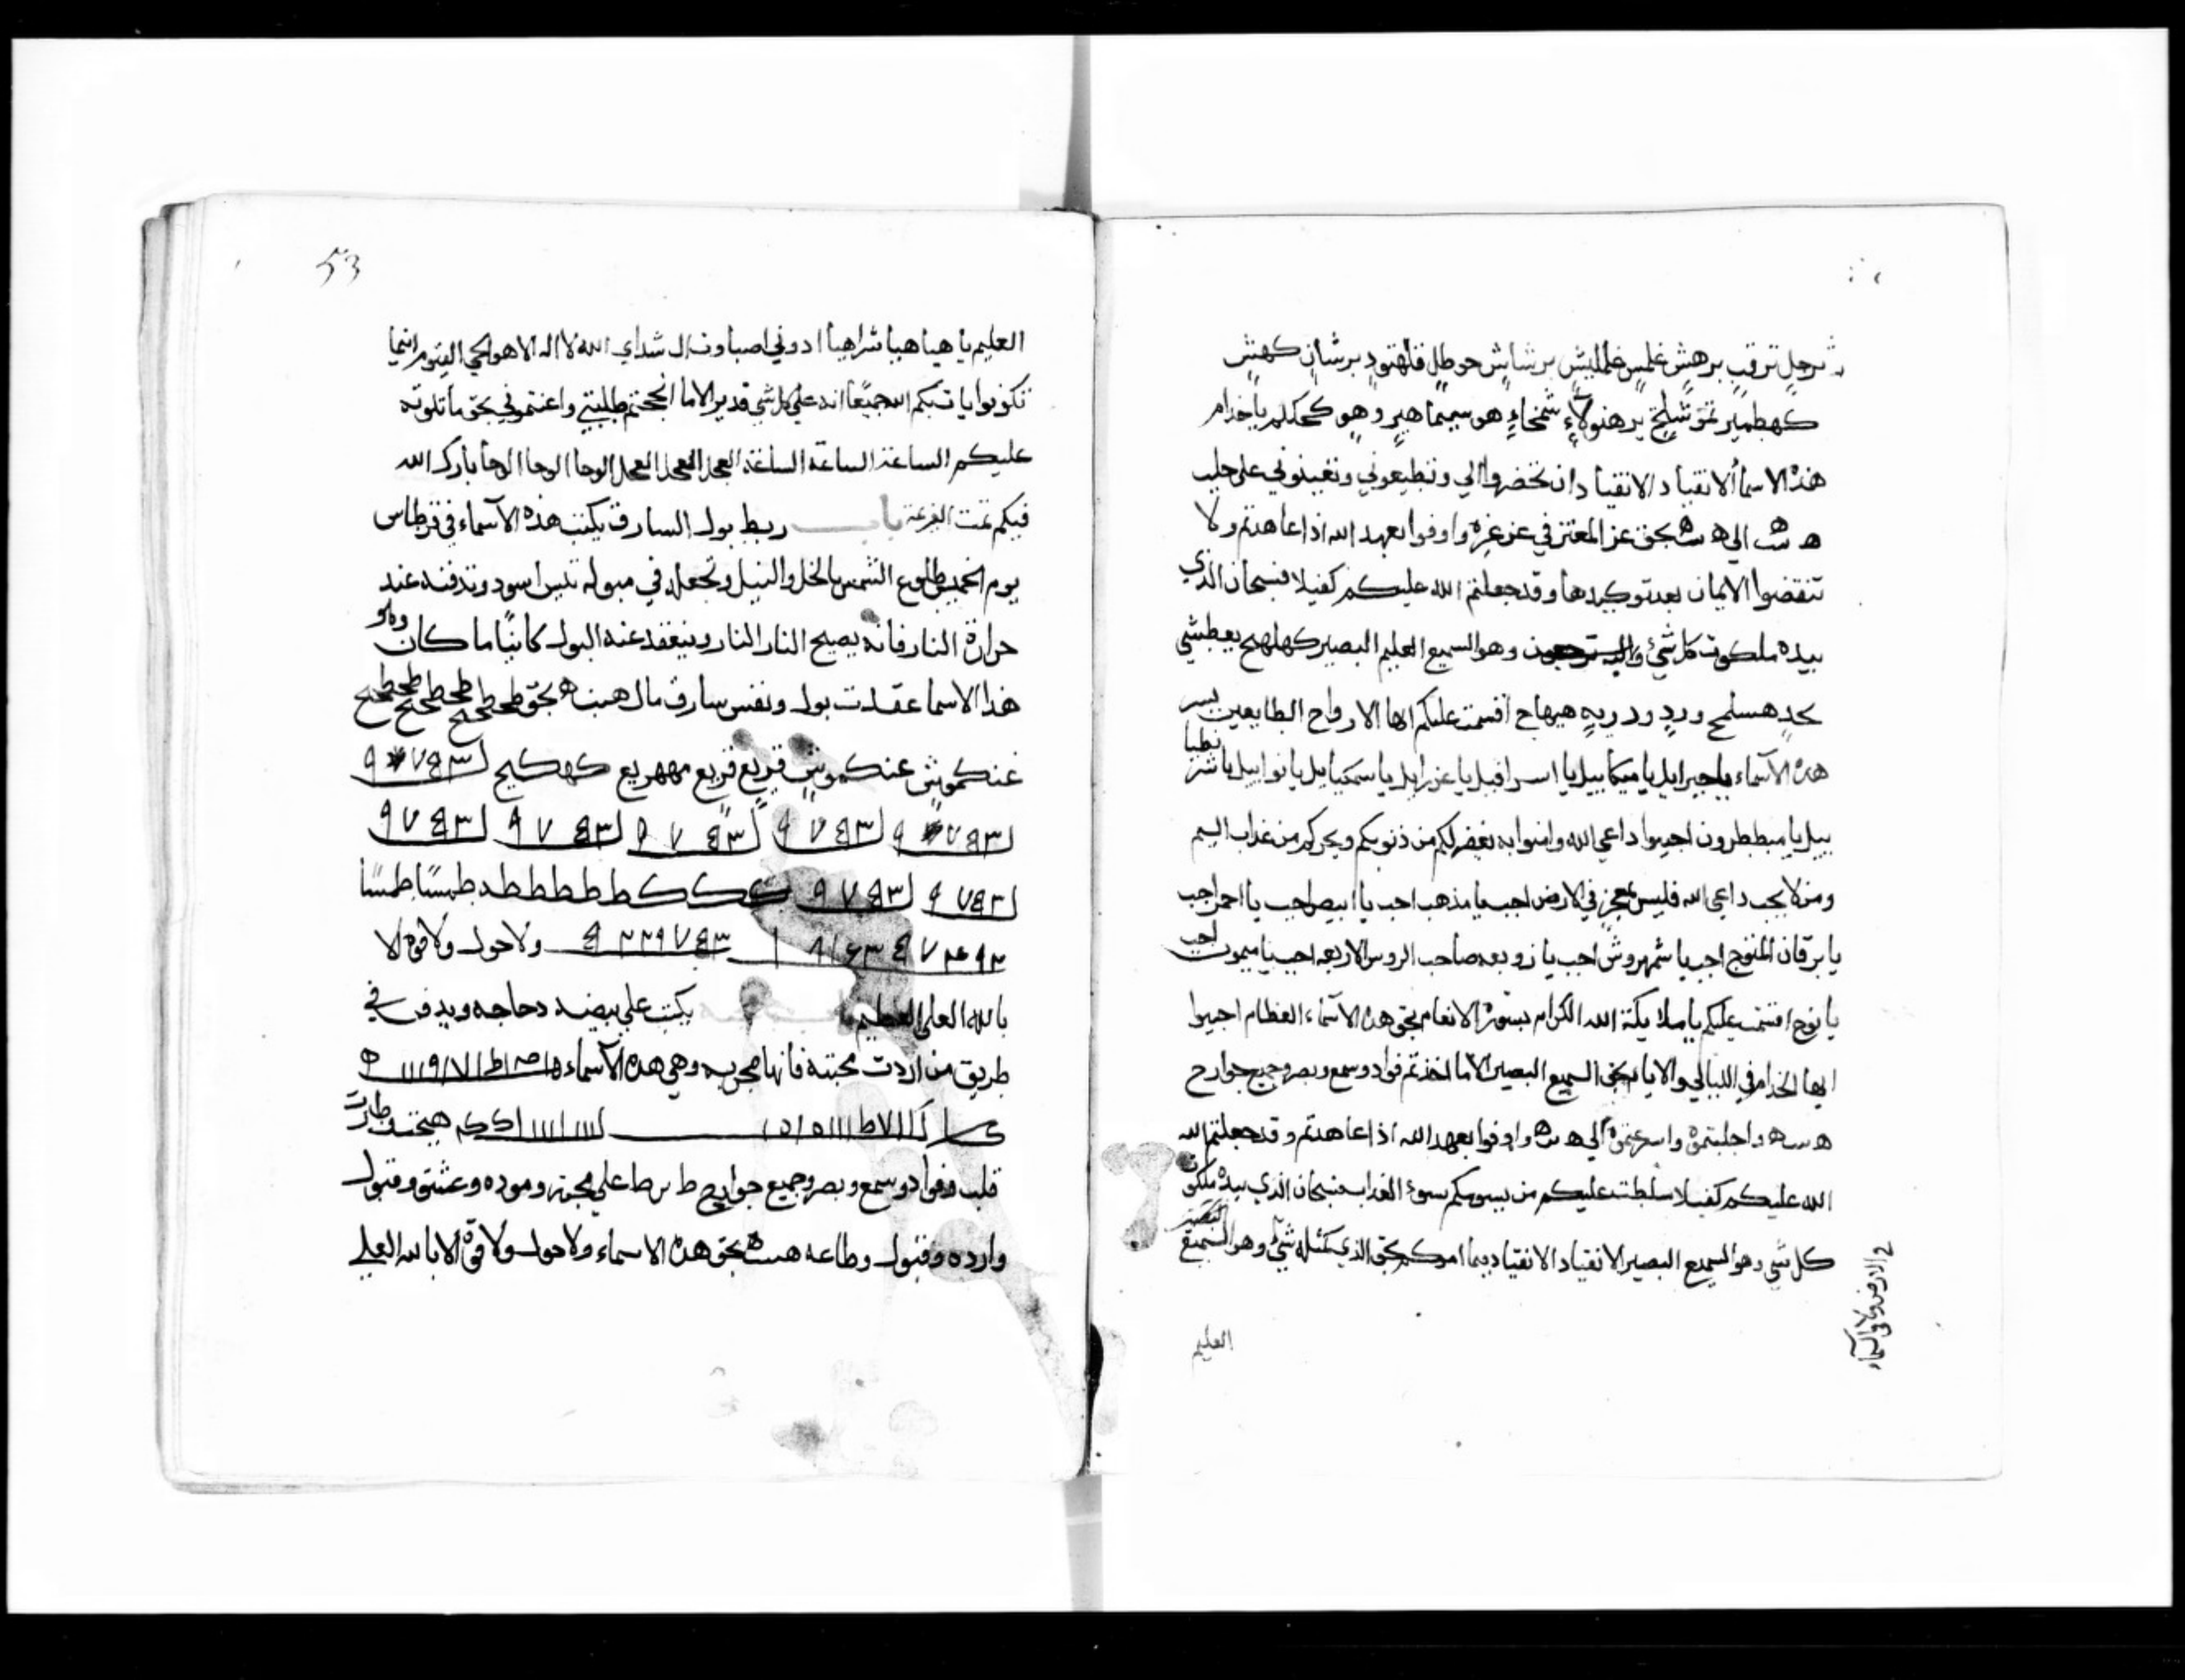 ترجل ترقب برهش غلمش خلمليش برشاش حوطل قلنهود برشان كهش
كهطمير نموشلخ برهنولاء شمخاء هو سيما هير وهو كحكلم يا خدام
هذه الاسما الانقياد الانقياد ان تخضروا الي وتطيعوني وتعينوني على جلب
ه ش الى ه ش بحق عز المعتز في عز عزه واوفوا بعهد الله اذا عاهدتم ولا
تنقضوا الايمان بعد توكيدها وقد جعلتم الله عليكم كفيلا فسبحان الذي
بيده ملكوت كل شئ واليه ترجعون وهو السميع العليم البصير كهلهج يعطشي
بحد هسلمح ورد ورد ربه هيهاج اقسمت عليكم ايها الارواح الطايعين بسر
هذه الاسماء يا جبرايل يا ميكاييل يا اسرافيل يا عزرايل يا سمكيايل يا نوابيل يا شر نطيا
ييل يا ميططرون اجيبوا داعي الله وامنوا به يغفر لكم من ذنوبكم ويجركم من عذاب اليم
ومن لا يجب داعي الله فليس بمعجز في الارض اجب يا مذهب اجب يا ابيض اجب يا احمر اجب
يا برقان اجب يا شمهروش اجب يا زوبعه صاحب الروس الاربعه اجب يا ميمون اجب
يا نوح اقسمت عليكم يا ملايكة الله الكرام بسورة الانعام بحق هذه الاسماء العظام اجيبوا
ايها الخدام في الليالي والايام بحق السميع البصير الا ما اخذتم فواد وسمع وبصر وجميع جوارح
ه ش ه واجلبتموه واسرعتموه الي ه ش ه واوفوا بعهد الله اذا عاهدتم وقد جعلتم الله
الله عليكم كفيلا سلطت عليكم من يسومكم سوء العذاب فسبحان الذي بيده ملكوت
كل شي وهو السميع البصير الانقياد الانقياد بما امركم بحق الذي كمثله شئ وهو السميع البصير
في الارض ولا في السماء
العليم
53
العليم يا هيا هيا شراهيا ادوني اصباوت ال شداي الله لا اله الا هو الحي القيوم اينما
تكونوا يات بكم الله جميعا انه على كل شي قدير الا ما انجحتم طلبتي واعنتموني بحق ما تلوته
عليكم الساعة الساعة الساعة العجل العجل العجل الوحا الوحا الوحا بارك الله
فيكم تمت باب ربط بول السارق يكتب هذه الاسماء في قرطاس
يوم الخميس طلوع الشمس بالخل والنيل وتجعل في مبولة تيس اسود وتدفنه عند
حرارة النار فانه يصيح النار النار وينعقد عنه البول كاينا ما كان وهو
هذا الاسما عقدت بول ونفس سارق مال هبت ه بحق طحطحطحيح طحطحطحيح
عنكموش عنكموش قريع قريع مههريع كهكيح
ك ك ك ك ط ط ط ط طد طمسا طمسا
ولا حول ولا قوة الا
بالله العلي العظيم يكتب على بيضه دجاجه ويدفن في
طريق من اردت محبته فانها مجربه وهي هذه الاسماء
قلب وفواد وسمع وبصر وجميع جوارح ط ر ط على محبة وموده وعشق وقبول
وارده وقبول وطاعه هسه بحق هذه الاسماء ولا حول ولا قوة الا بالله العلي